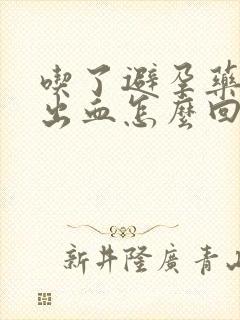 喫了避孕藥
出血怎麼回
新井隆廣 青山